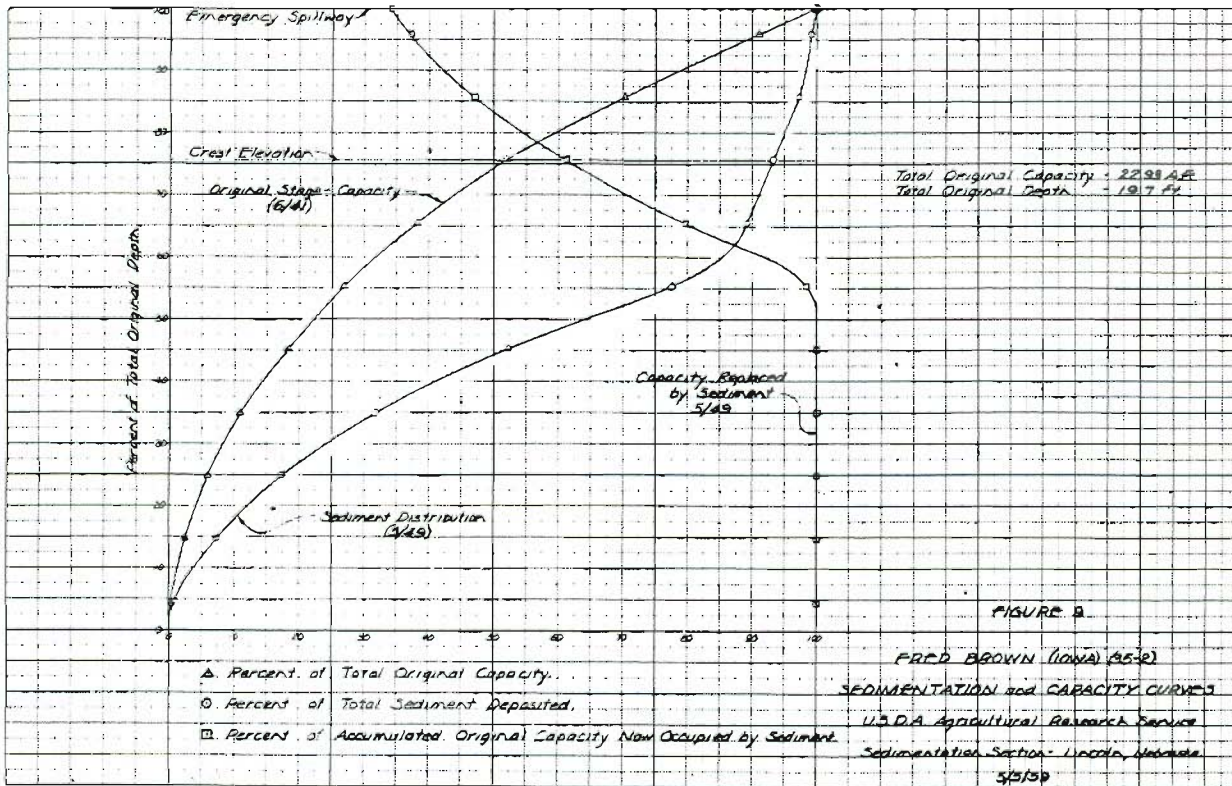 Emergency Spillway
Crest Elevation
Original Stage - Capacity
(6/41)
Total Original Capacity - 22.98 A.F.
Total Original Depth - 19.7 Ft.
Percent of Total Original Depth
Capacity Replaced
by Sediment
5/49
Sediment Distribution
(5/49)
100
90
80
70
60
50
40
30
20
10
0
0 10 20 30 40 50 60 70 80 90 100
FIGURE
△ Percent of Total Original Capacity.
○ Percent of Total Sediment Deposited.
□ Percent of Accumulated Original Capacity Now Occupied by Sediment
FRED BROWN (IOWA)
SEDIMENTATION and CAPACITY CURVES
U.S.D.A. Agricultural Research Service
Sedimentation Section - Lincoln, Nebraska
5/5/59